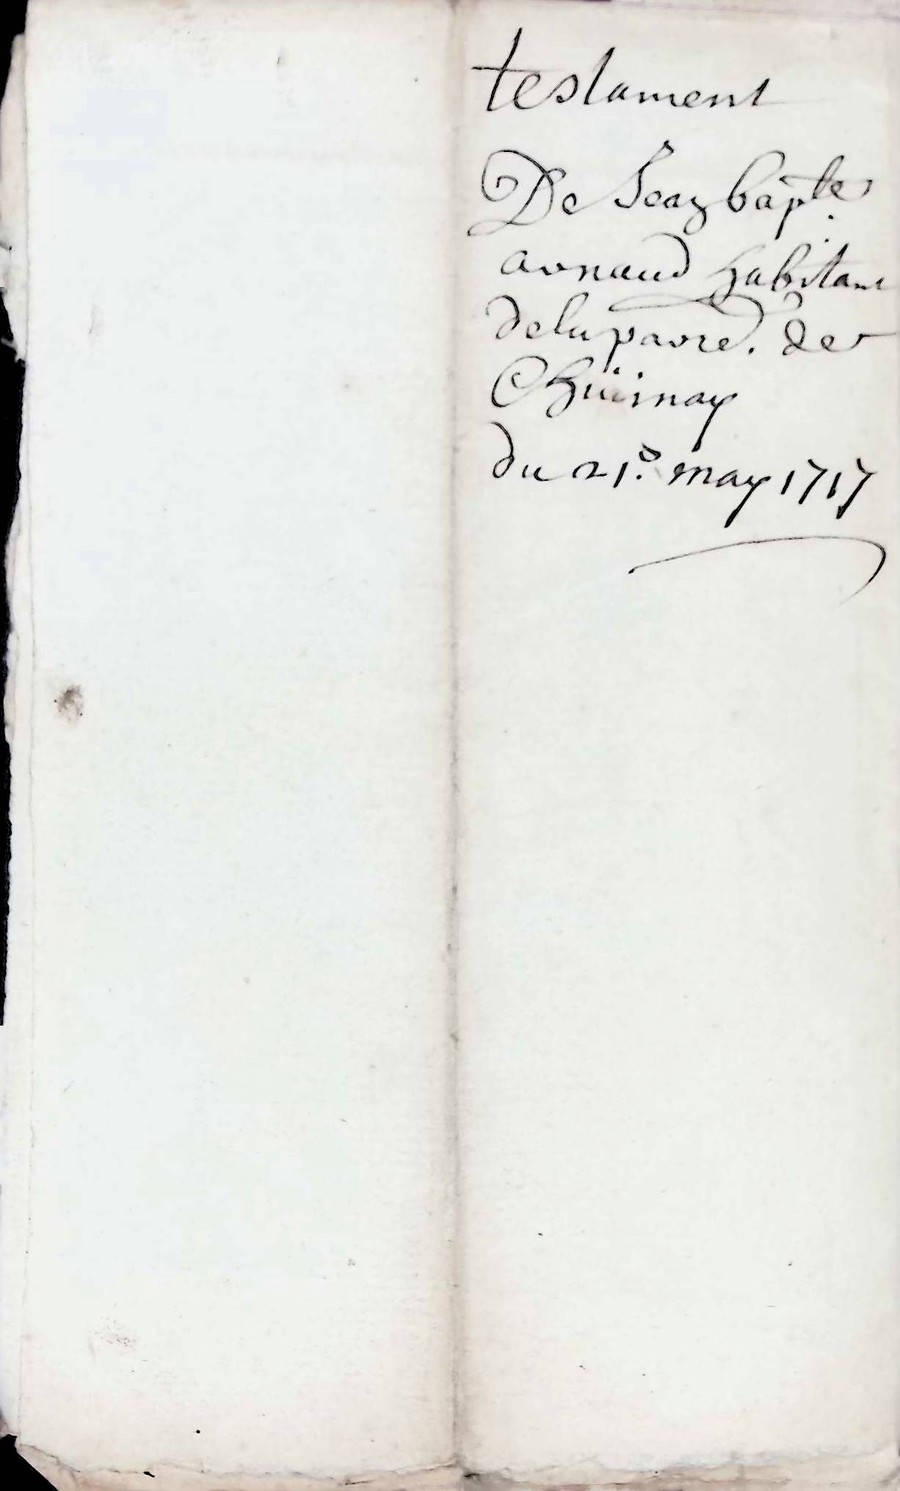 testament
De Jean bap.te
arnaud habitant
de la parre. de
Chuirnay
du 21.e may 1717